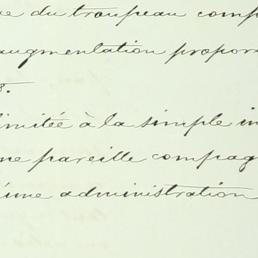 du troupeau comp
augmentation propor
s.
limitée à la simple in
ne pareille compag
d'une administration